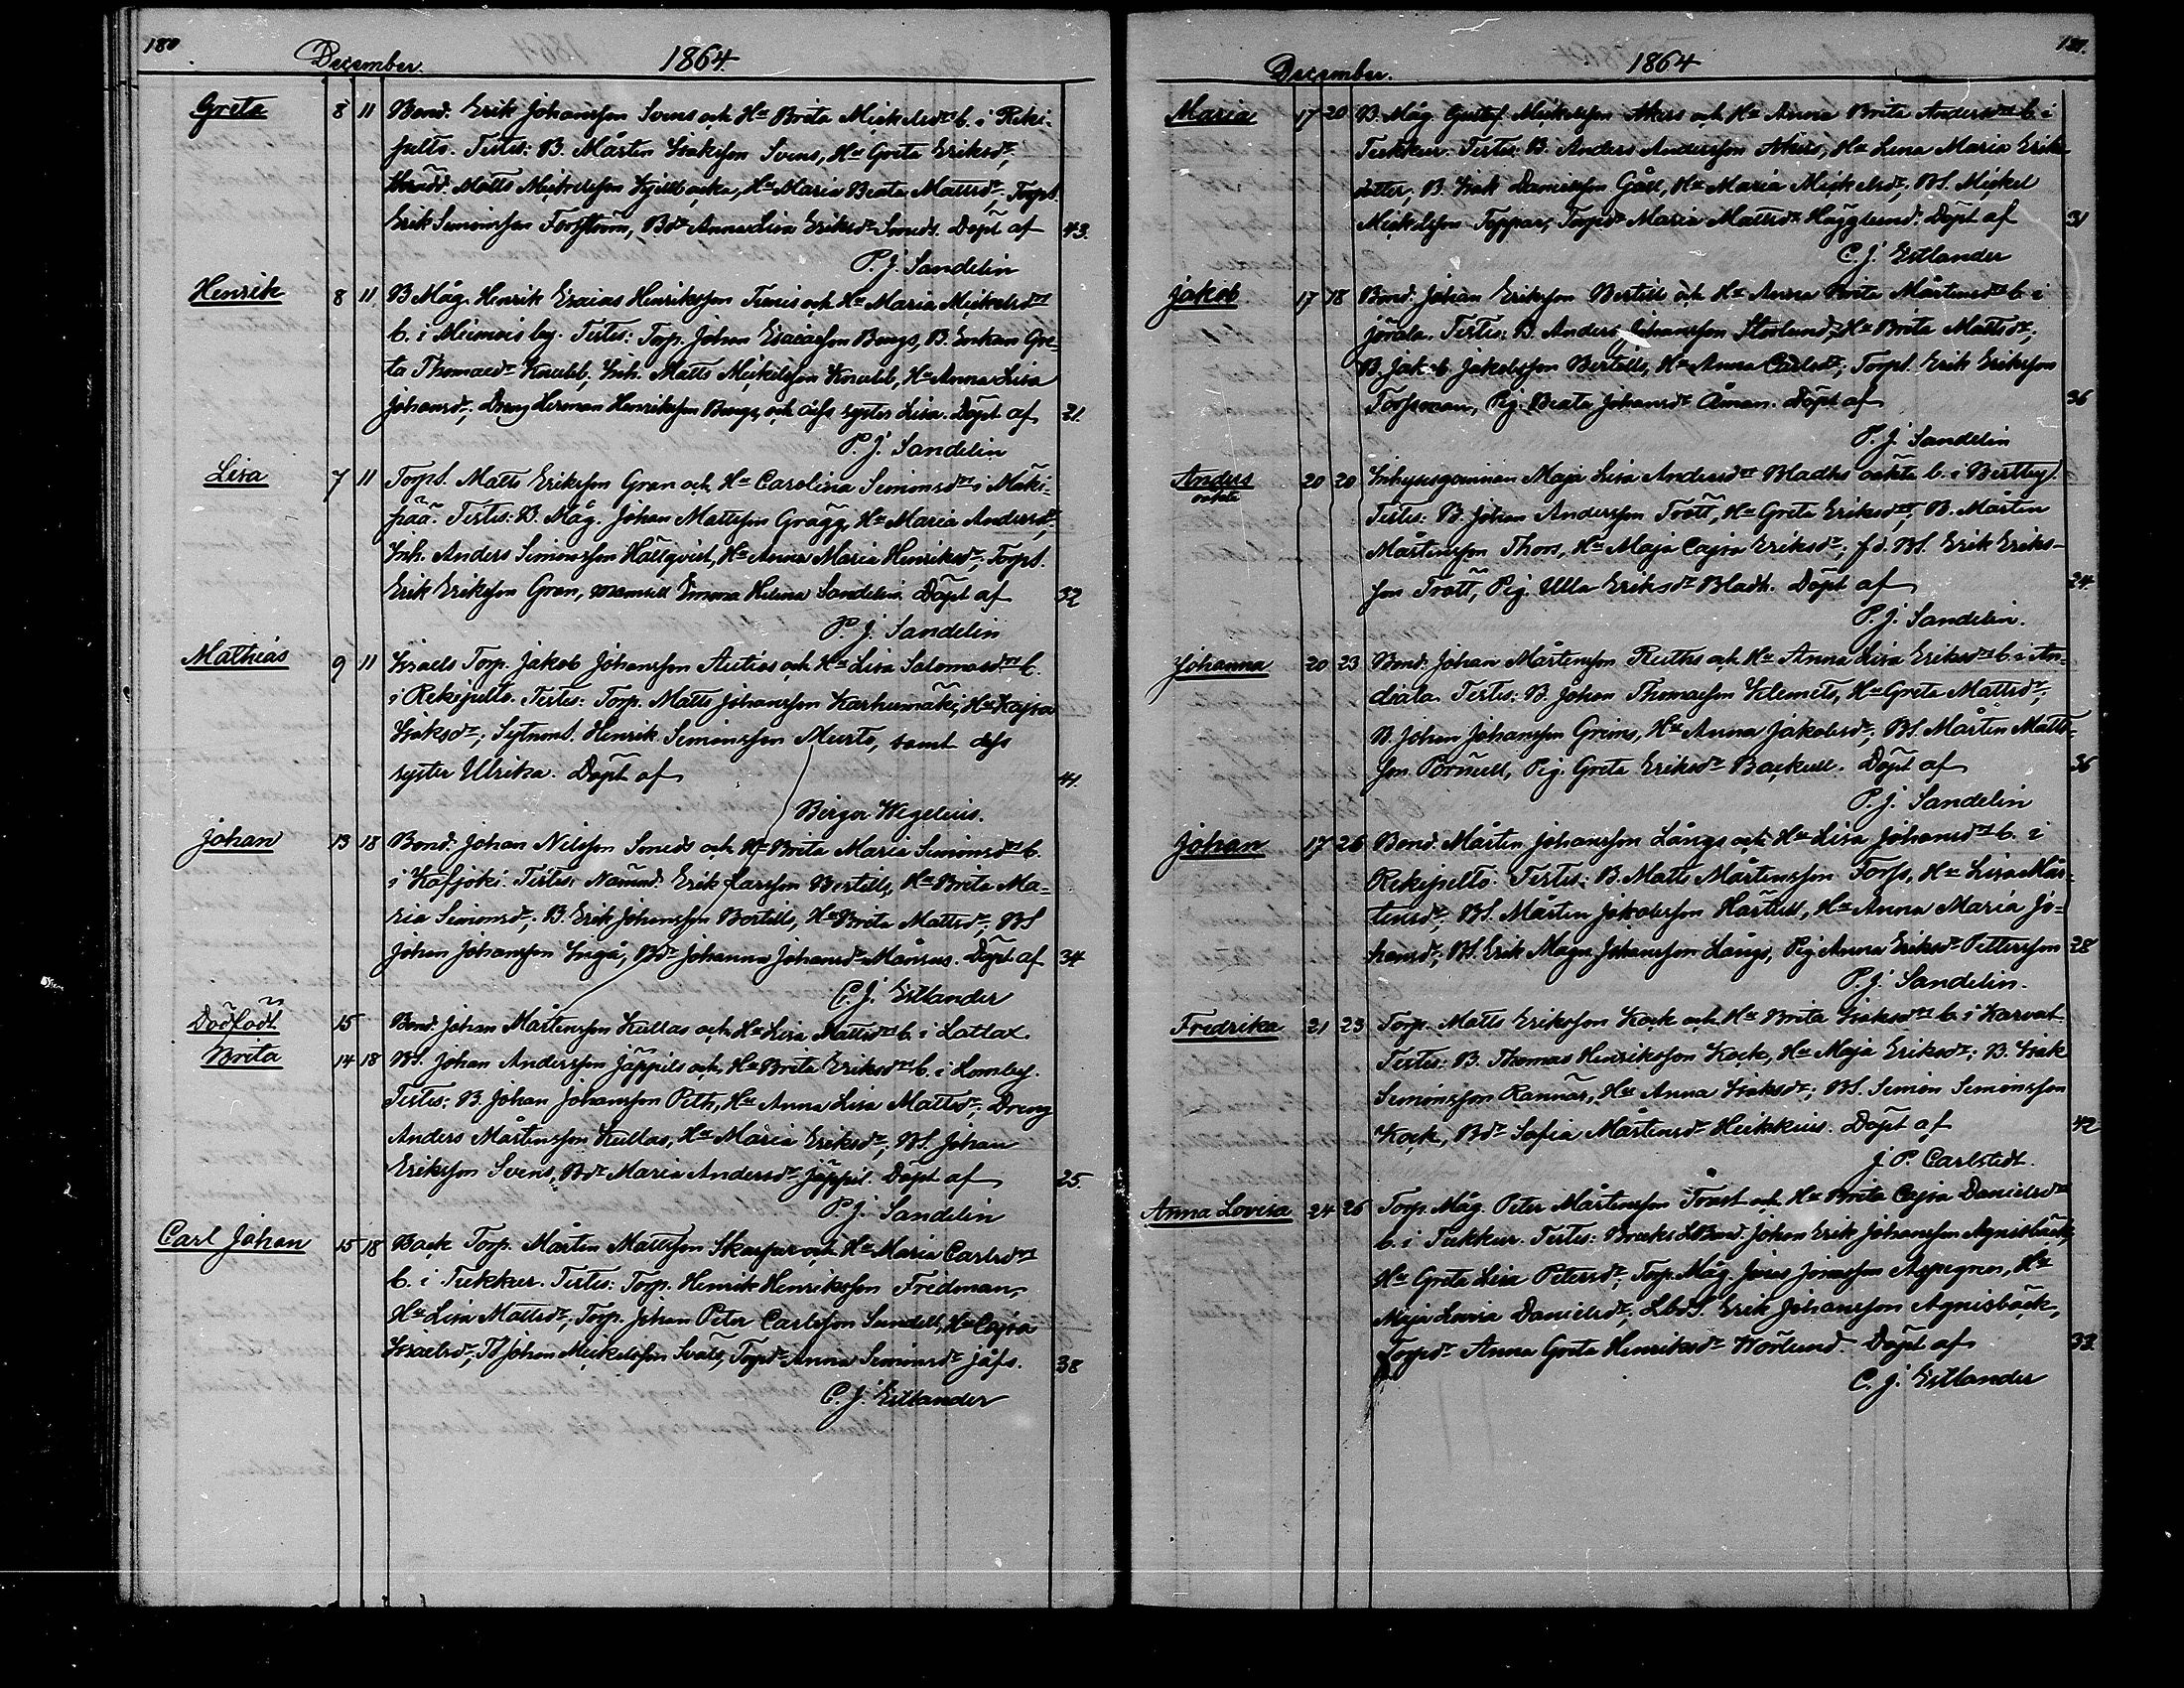 180
December. 1864.
Greta 8 11 Bond. Erik Johansson Svens och Hu Brita Mickelsdr b. i Reki-
pelto. Testes: B. Mårten Isaksson Svens, Hu Greta Eriksdr,
Matts Mickelsson Hu Maria Beata Mattsdr, Torps.
Erik Simonsson Forsström, Bdr Anna Lisa Eriksdr Smeds. Döpt af 43.
P. J. Sandelin
Henrik 8 11 B. Måg. Henrik Esaias Henriksson och Hu Maria Mickelsdr
b. i by. Testes: Torp. Johan Esaiasson Bengs, B. Enkan Gre-
ta Thomasdr Knubb, Inh. Matts Mickelsson Knubb, Hu Anna Lisa
Johansdr; Dreng Herman Henriksson Bengs, och dess syster Lisa. Döpt af 21.
P. J. Sandelin
Lisa 7 11 Torps. Matts Eriksson Gran och Hu Carolina Simonsdr i Mäki-
pää. Testes: B. Måg. Johan Mattsson Grägg, Hu Maria Andersdr,
Inh. Anders Simonsson Hällqvist, Hu Anna Maria Henriksdr, Torps.
Erik Eriksson Gran, Mamsell Emma Helena Sandelin. Döpt af 32
P. J. Sandelin
Mathias 9 11 Israels Torp. Jakob Johansson Antias och Hu Lisa Salomosdr b.
i Rekipelto. Testes: Torp. Matts Johansson Karhumäki, Hu Kajsa
Isaksdr; Sytnms. Henrik Simonsson Murto, samt dess
syster Ulrika. Döpt af 41.
Birger Wegelius.
Johan 13 18 Bond. Johan Nilsson Smeds och Hu Brita Maria Simonsdr b.
i Kåfjoki. Testes: Nämnd. Erik Larsson Bertills, Hu Brita Ma-
ria Simonsdr; B. Erik Johansson Bertills, Hu Brita Mattsdr, BS
Johan Johansson Ingå, Bdr Johanna Johansdr Månsus. Döpt af 34
C. J. Estlander
Dödfödt 15 Bond. Johan Mårtensson Kullas och Hu Lisa Mattsdr b. i Lattax.
Brita 14 18 BS. Johan Andersson Jäppils och Hu Brita Eriksdr b. i Lomby.
Testes: B. Johan Johansson Peth, Hu Anna Lisa Mattsdr, Dreng
Anders Mårtensson Kullas, Hu Maria Eriksdr, BS. Johan
Eriksson Svens, Bdr Maria Andersdr Jäppil. Döpt af 25.
P. J. Sandelin
Carl Johan 15 18 Back Torp. Mårten Mattsson Skaspar och Hu Maria Carlsdr
b. i Tukkur. Testes: Torp. Henrik Henriksson Fredman,
Hu Lisa Mattsdr, Torp. Johan Peter Carlsson Sundell, Hu Cajsa
Israelsdr, TS Johan Mickelsson Svals, Torpdr Anna Simonsdr Jåfs. 38
C. J. Estlander
181.
December. 1864
Maria 17 20 B. Måg. Gustaf Mickelsson Akers och Hu Anna Brita Andersdr b. i
Tukkur. Testes: B. Anders Andersson Akers, Hu Lena Maria Eriks
dotter, B. Isak Danielsson Gåll, Hu Maria Mickelsdr, BS. Mickel
Mickelsson Toppar, Torpdr Maria Mattsdr Hägglund. Döpt af 31
C. J. Estlander
Jakob 17 18 Bond. Johan Eriksson Bertills och Hu Anna Brita Mårtensdr b. i
Jörala. Testes: B. Anders Johansson Storlund, Hu Brita Mattsdr,
B. Jakob Jakobsson Bertills, Hu Anna Carlsdr, Torps. Erik Eriksson
Forsman, Pig. Beata Johansdr Åman. Döpt af 36
P. J. Sandelin
Anders oäkta 20 20 Inhysesqvinnan Maja Lisa Andersdr Bladhs oäkta b. i Bertby.
Testes: B. Johan Andersson Trött, Hu Greta Eriksdr, B. Mårten
Mårtensson Thors, Hu Maja Cajsa Eriksdr, f.d. BS. Erik Eriks-
son Trött, Pig. Ulla Eriksdr Bladh. Döpt af 24.
P. J. Sandelin.
Johanna 20 23 Bond. Johan Mårtensson Ruths och Hu Anna Lisa Eriksdr b. i An-
diala. Testes: B. Johan Thomasson Klemets, Hu Greta Mattsdr,
B. Johan Johansson Greims, Hu Anna Jakobsdr, BS. Mårten Matts-
son Pörnull, Pig. Greta Eriksdr Backull. Döpt af 36
P. J. Sandelin
Johan 17 26 Bond. Mårten Johansson Långs och Hu Lisa Johansdr b. i
Rekipelto. Testes: B. Matts Mårtensson Forss, Hu Lisa Mår-
tensdr, BS. Mårten Jakobsson Härtull, Hu Anna Maria Jo-
hansdr, BS. Erik Magn. Johansson Långs, Pig Anna Eriksdr Pettersson 28
P. J. Sandelin.
Fredrika 21 23 Torp. Matts Eriksson Kock och Hu Brita Isaksdr b. i Karvat.
Testes: B. Thomas Henriksson Kock, Hu Maja Eriksdr; B. Isak
Simonsson Rannas, Hu Anna Isaksdr; BS. Simon Simonsson
Kock, Bdr Sofia Mårtensdr Heikkus. Döpt af 42
J. P. Carlstedt.
Anna Lovisa 24 26 Torp. Måg. Peter Mårtensson Trast och Hu Brita Cajsa Danielsdr
b. i Tukkur. Testes: Bruks LBond. Johan Erik Johansson Agnisbäck,
Hu Greta Lisa Petersdr, Torp. Måg. Jonas Jonasson Aspegren, Hu
Maja Lovisa Danielsdr, LbdS. Erik Johansson Agnisbäck,
Torpdr Anna Greta Henriksdr Wörlund. Döpt af 33.
C. J. Estlander